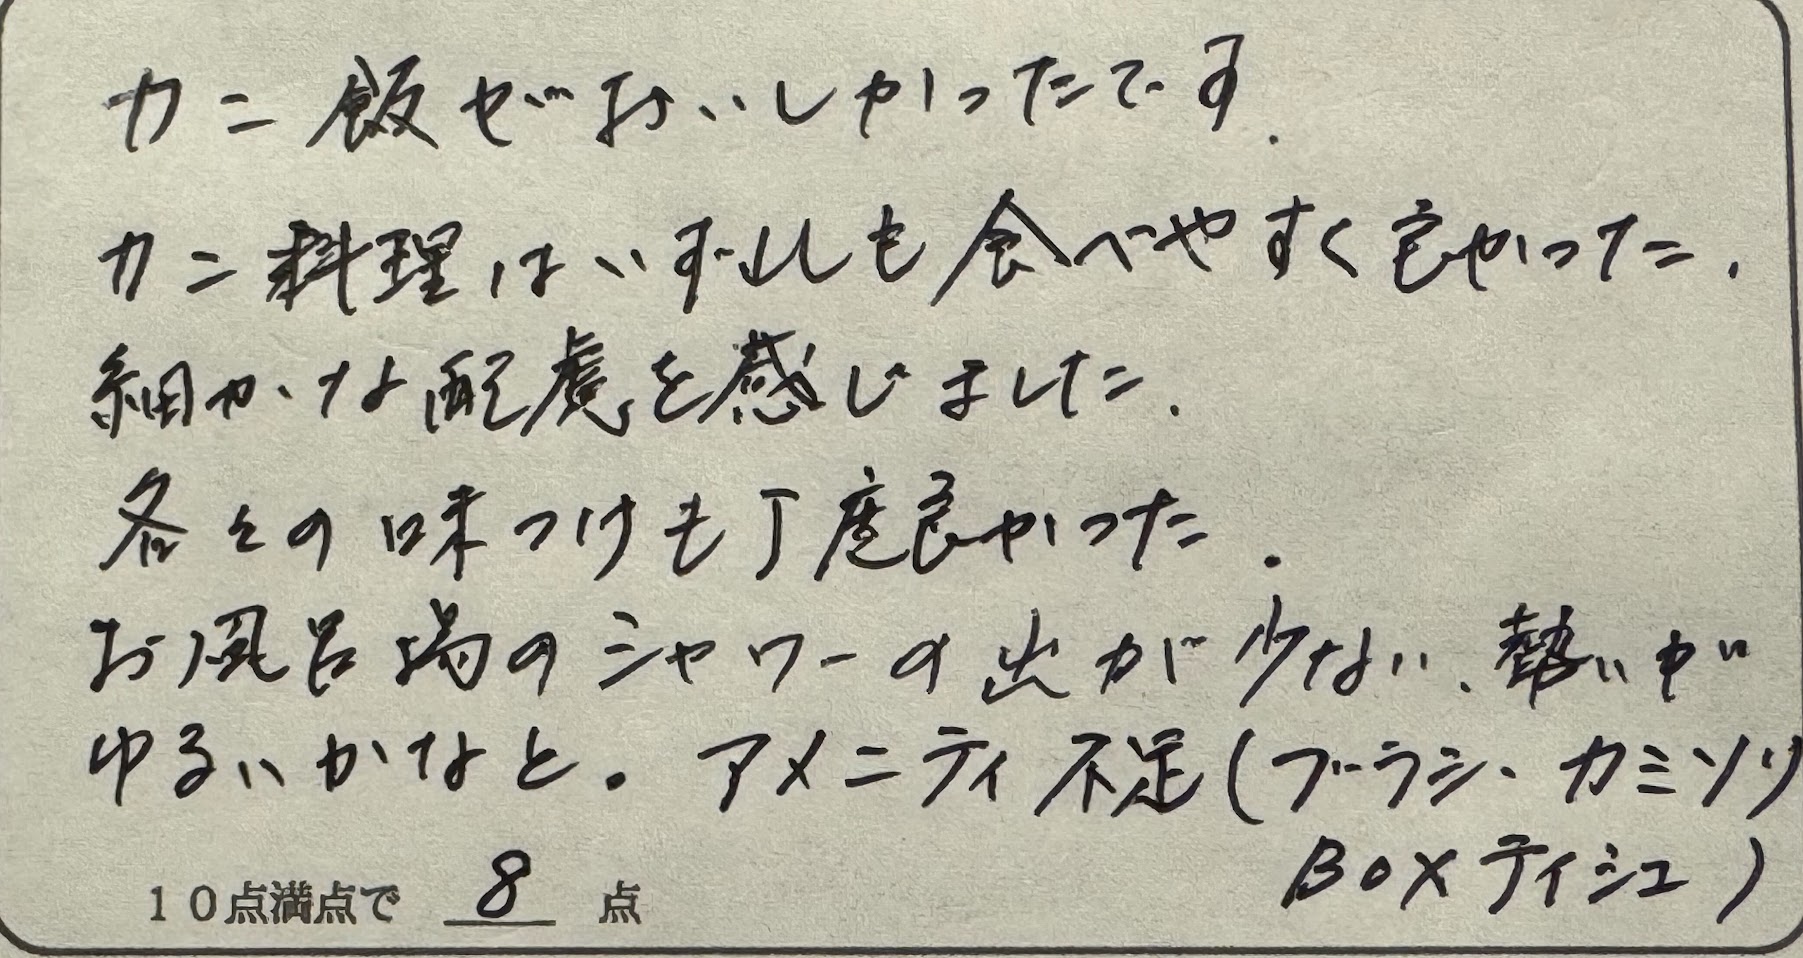 カニ飯がおいしかったです.
カニ料理はいずれも食べやすく良かった.
細かな配慮を感じました.
各々の味つけも丁度良かった.
お風呂場のシャワーの出が少ない、勢いが
ゆるいかなと。アメニティ不足(ブラシ、カミソリ
BOXティシュ)
10点満点で 8 点